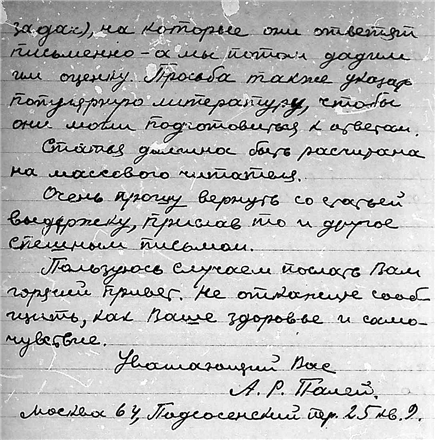 задач), на которые они ответят
письменно - а мы потом дадим
им оценку. Просьба также указать
популярную литературу, чтобы
они могли подготовиться к ответам.
Статья должна быть расчитана
на массового читателя.
Очень прошу вернуть со статьей
выдержку, прислав то и другое
спешным письмом.
Пользуюсь случаем послать Вам
горячий привет. Не откажите сооб
щить, как Ваше здоровье и само-
чувствие.
Уважающий Вас
А. Р. Палей.
Москва 64, Подсосенский пер. 25 кв. 9.